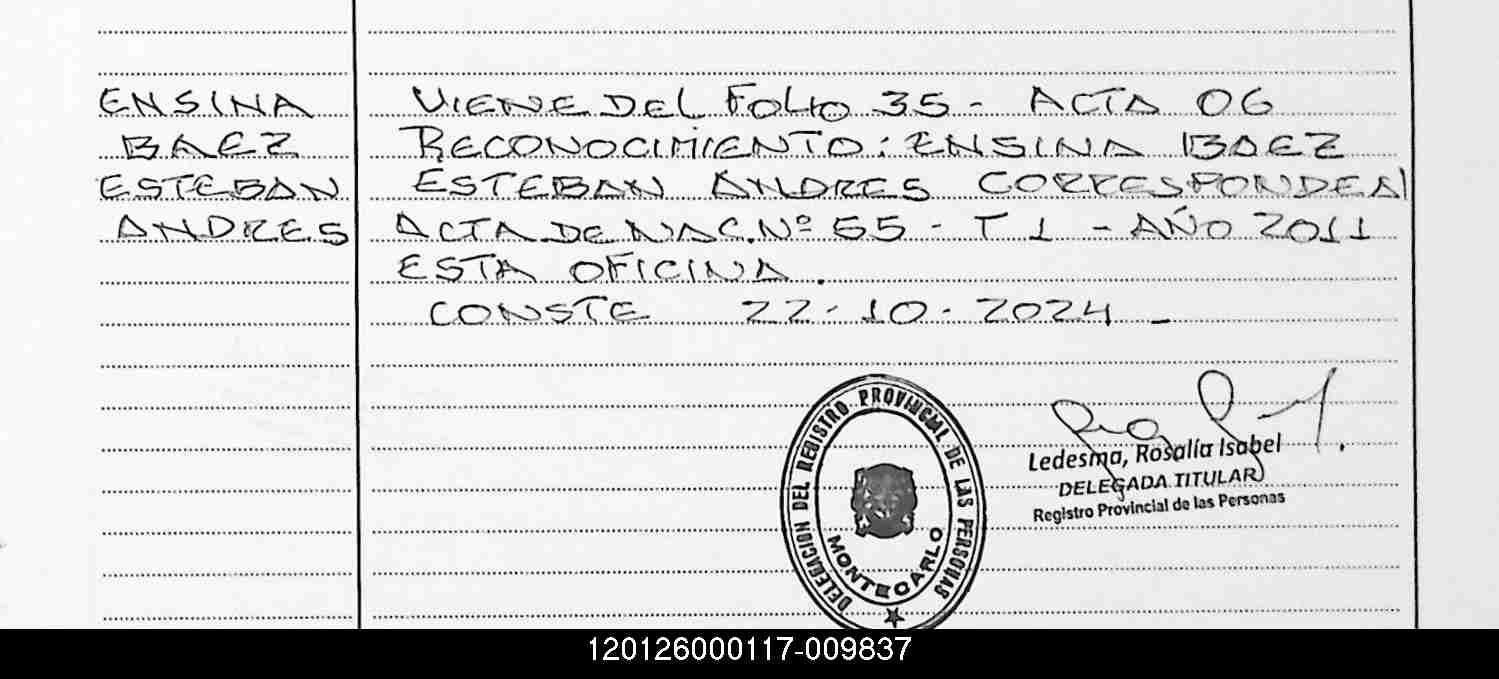 ENSINA
BAEZ
ESTEBAN
ANDRES
VIENE DEL FOLIO 35 - ACTA 06
RECONOCIMIENTO: ENSINA BAEZ
ESTEBAN ANDRES CORRESPONDE Al
ACTA DE NAC. Nº 65 - T 1 - AÑO 2011
ESTA OFICINA.
CONSTE 22-10-2024 -
DELEGACION DEL REGISTRO PROVINCIAL DE LAS PERSONAS
MONTECARLO
Ledesma, Rosalía Isabel
DELEGADA TITULAR
Registro Provincial de las Personas
120126000117-009837